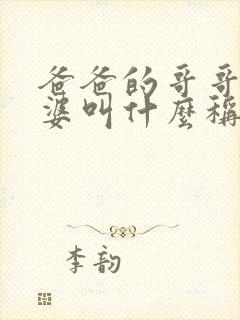 爸爸的哥哥
婆叫什麼稱
李韵